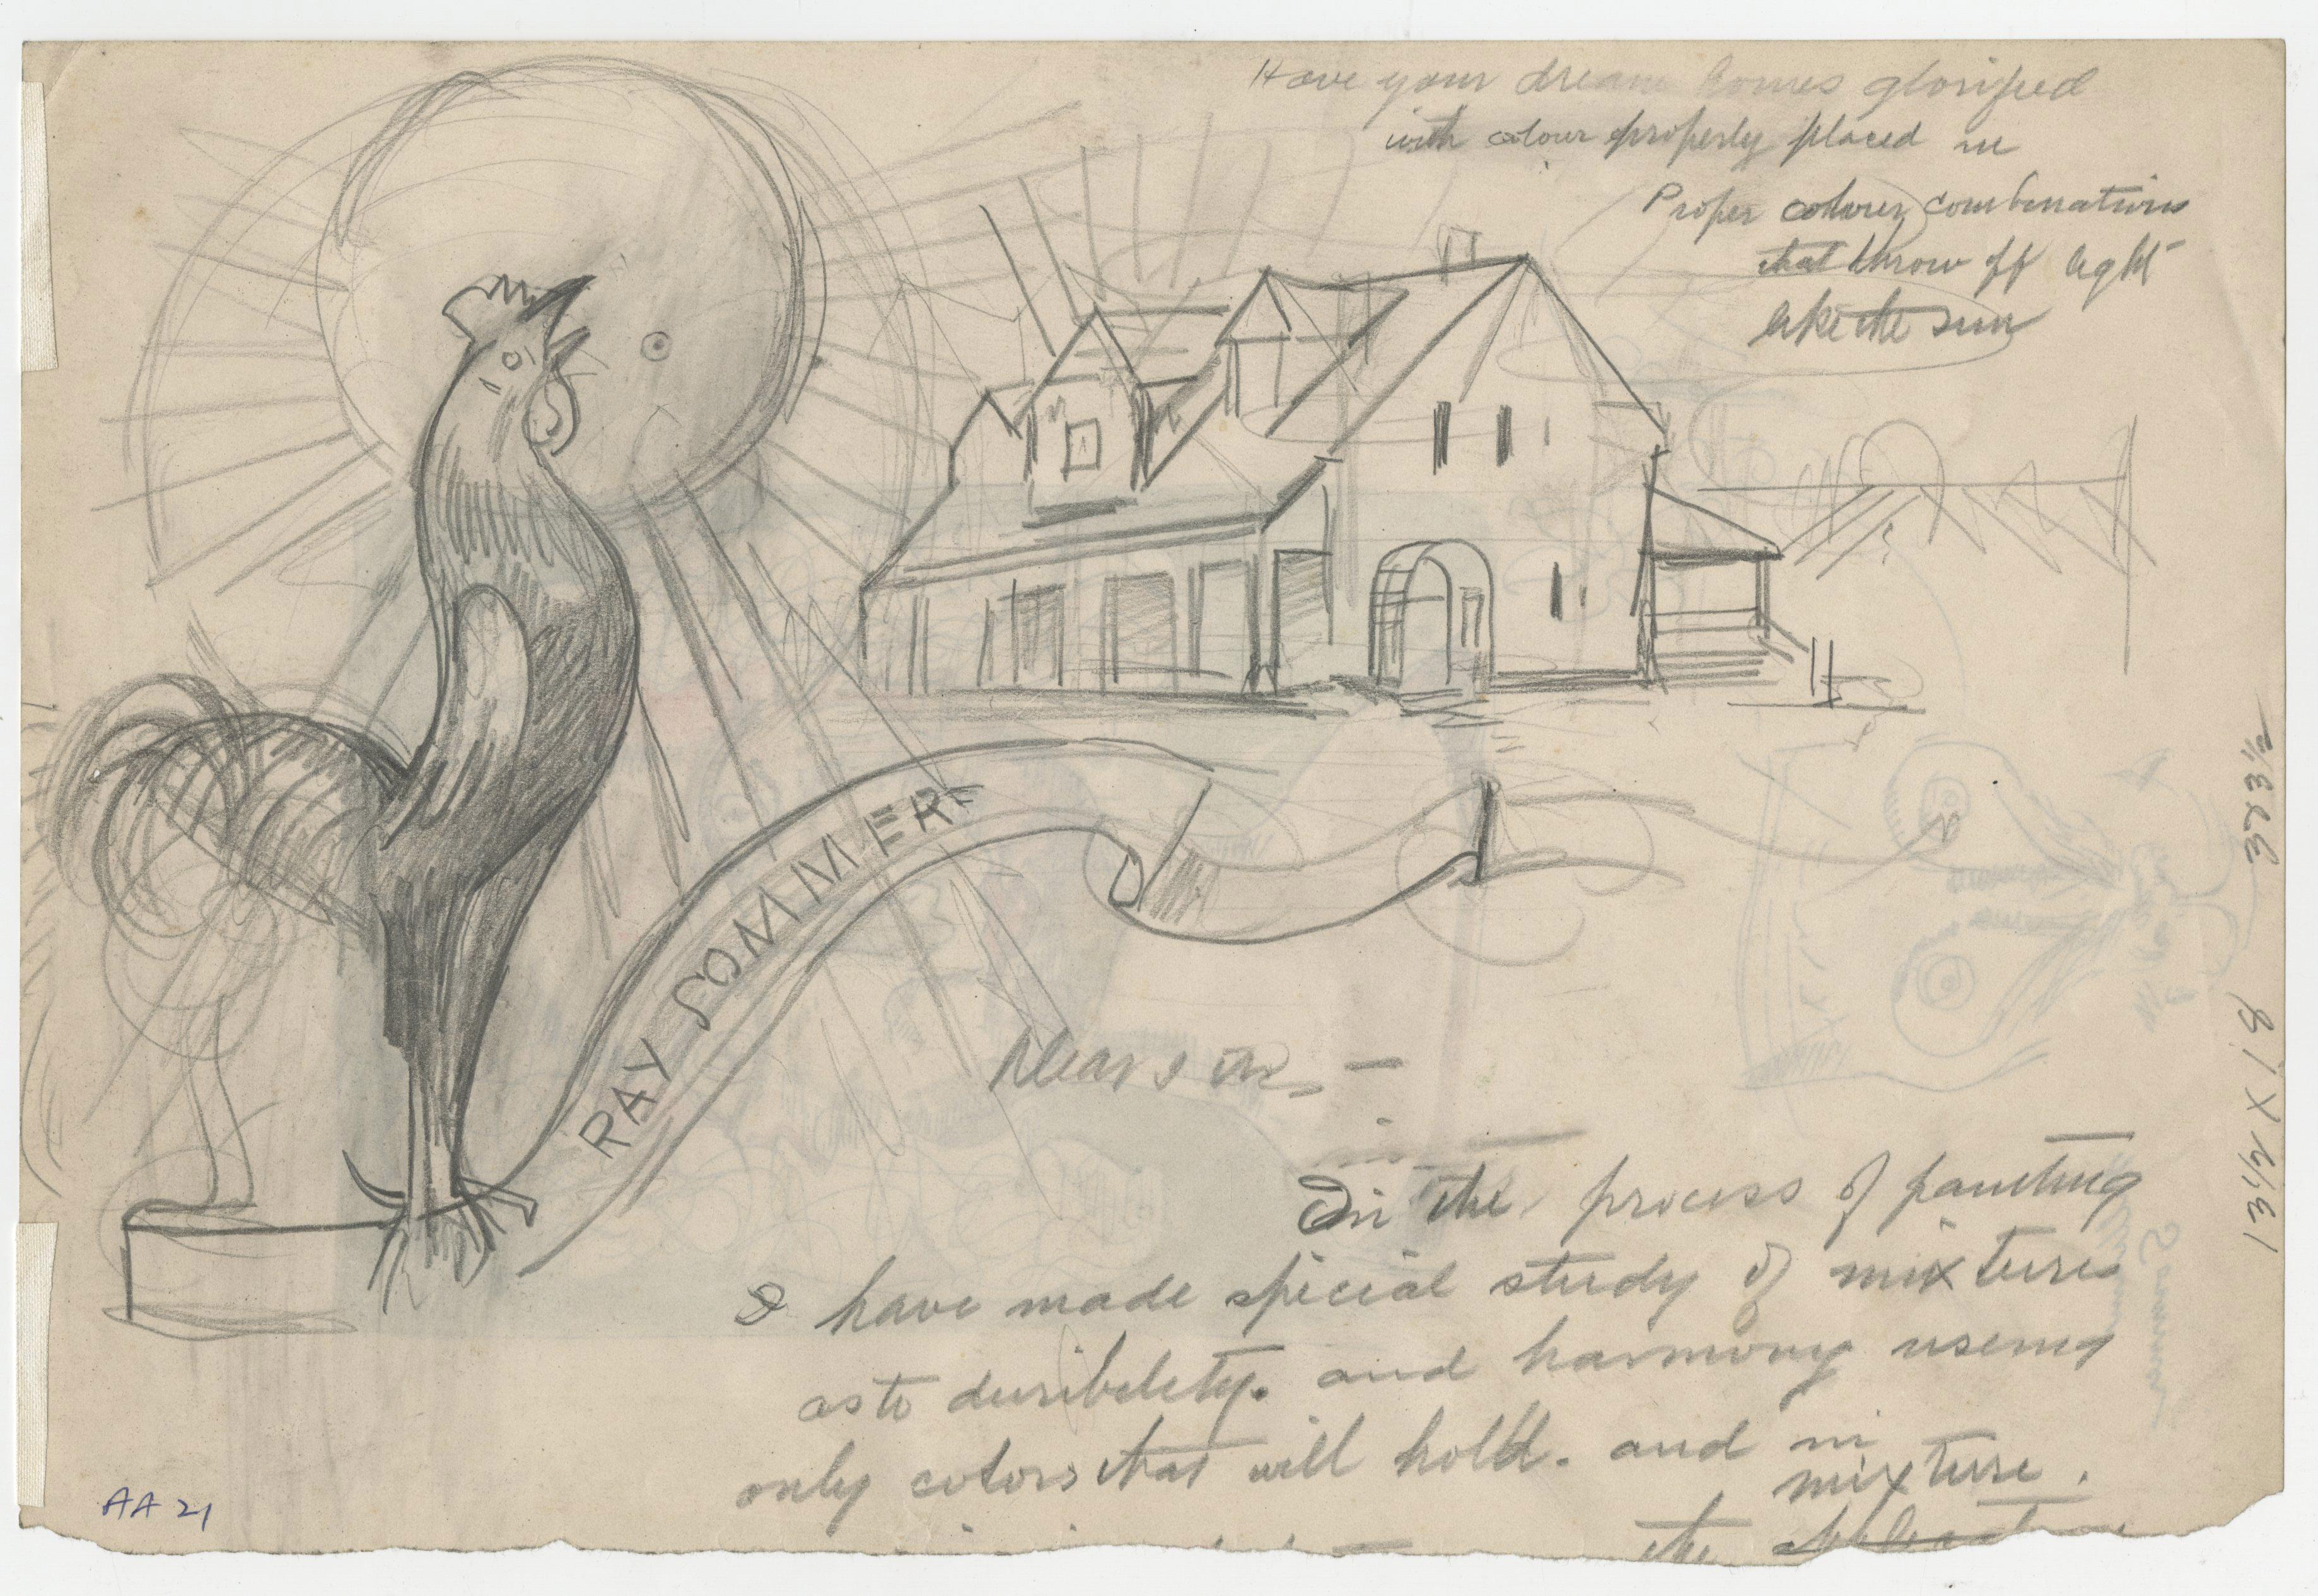 Have your dream homes glorified
with colour properly placed in
Proper colour combinations
that throw off light
like the sun
RAY SOMMER
Dear Sir, —
In the process of painting
I have made special study of mixtures
as to duribelety. and harmony useing
only colors that will hold. and in
mixture.
the
AA 21
373 1/2
13 4/4 X 8 1
Sommer